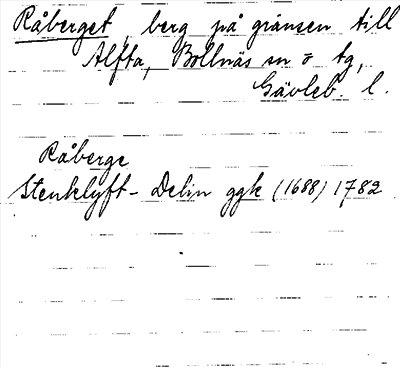 Råberget, berg på gränsen till
Alfta, Bollnäs sn o tg,
Gävleb. l.
Råberge
Stenklyft- Delin ggk (1688) 1782